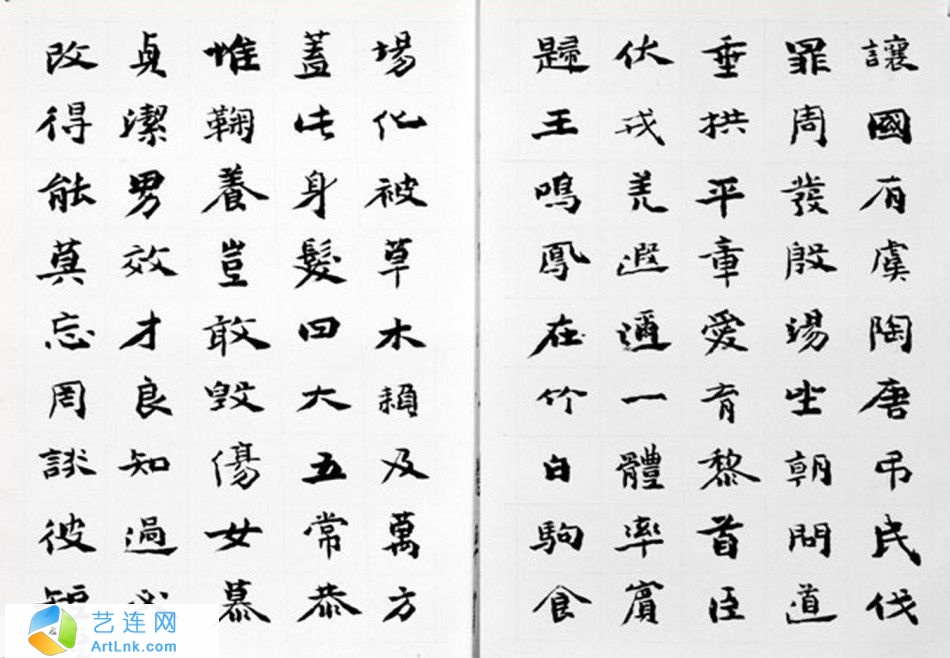 讓國有虞陶唐吊民伐
罪周發殷湯坐朝問道
垂拱平章愛育黎首臣
伏戎羌遐邇一體率賓
歸王鳴鳳在竹白駒食
場化被草木賴及萬方
蓋此身髮四大五常恭
惟鞠養豈敢毀傷女慕
貞潔男效才良知過必
改得能莫忘罔談彼短
艺连网
ArtLnk.com